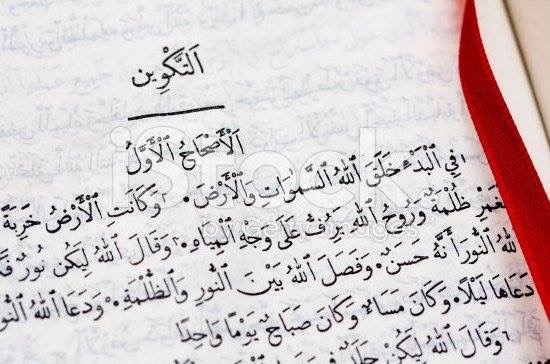 اَلتَّكْوِين
اَلْأَصْحَاحُ ٱلْأَوَّلُ
١فِي ٱلْبَدْءِ خَلَقَ ٱللهُ ٱلسَّمٰوَاتِ وَٱلْأَرْضَ. ٢وَكَانَتِ ٱلْأَرْضُ خَرِبَةً
غَمْرِ ظُلْمَةٌ وَرُوحُ ٱللهِ يَرِفُّ عَلَى وَجْهِ ٱلْمِيَاهِ. ٣وَقَالَ ٱللهُ لِيَكُنْ نُورٌ
ٱللهُ ٱلنُّورَ أَنَّهُ حَسَنٌ. وَفَصَلَ ٱللهُ بَيْنَ ٱلنُّورِ وَٱلظُّلْمَةِ. ٥وَدَعَا ٱللهُ ٱلنُّو
دَعَاهَا لَيْلًا. وَكَانَ مَسَاءٌ وَكَانَ صَبَاحٌ يَوْمًا وَاحِدًا
٦وَقَالَ ٱللهُ لِيَكُنْ
iStock
by Getty Images